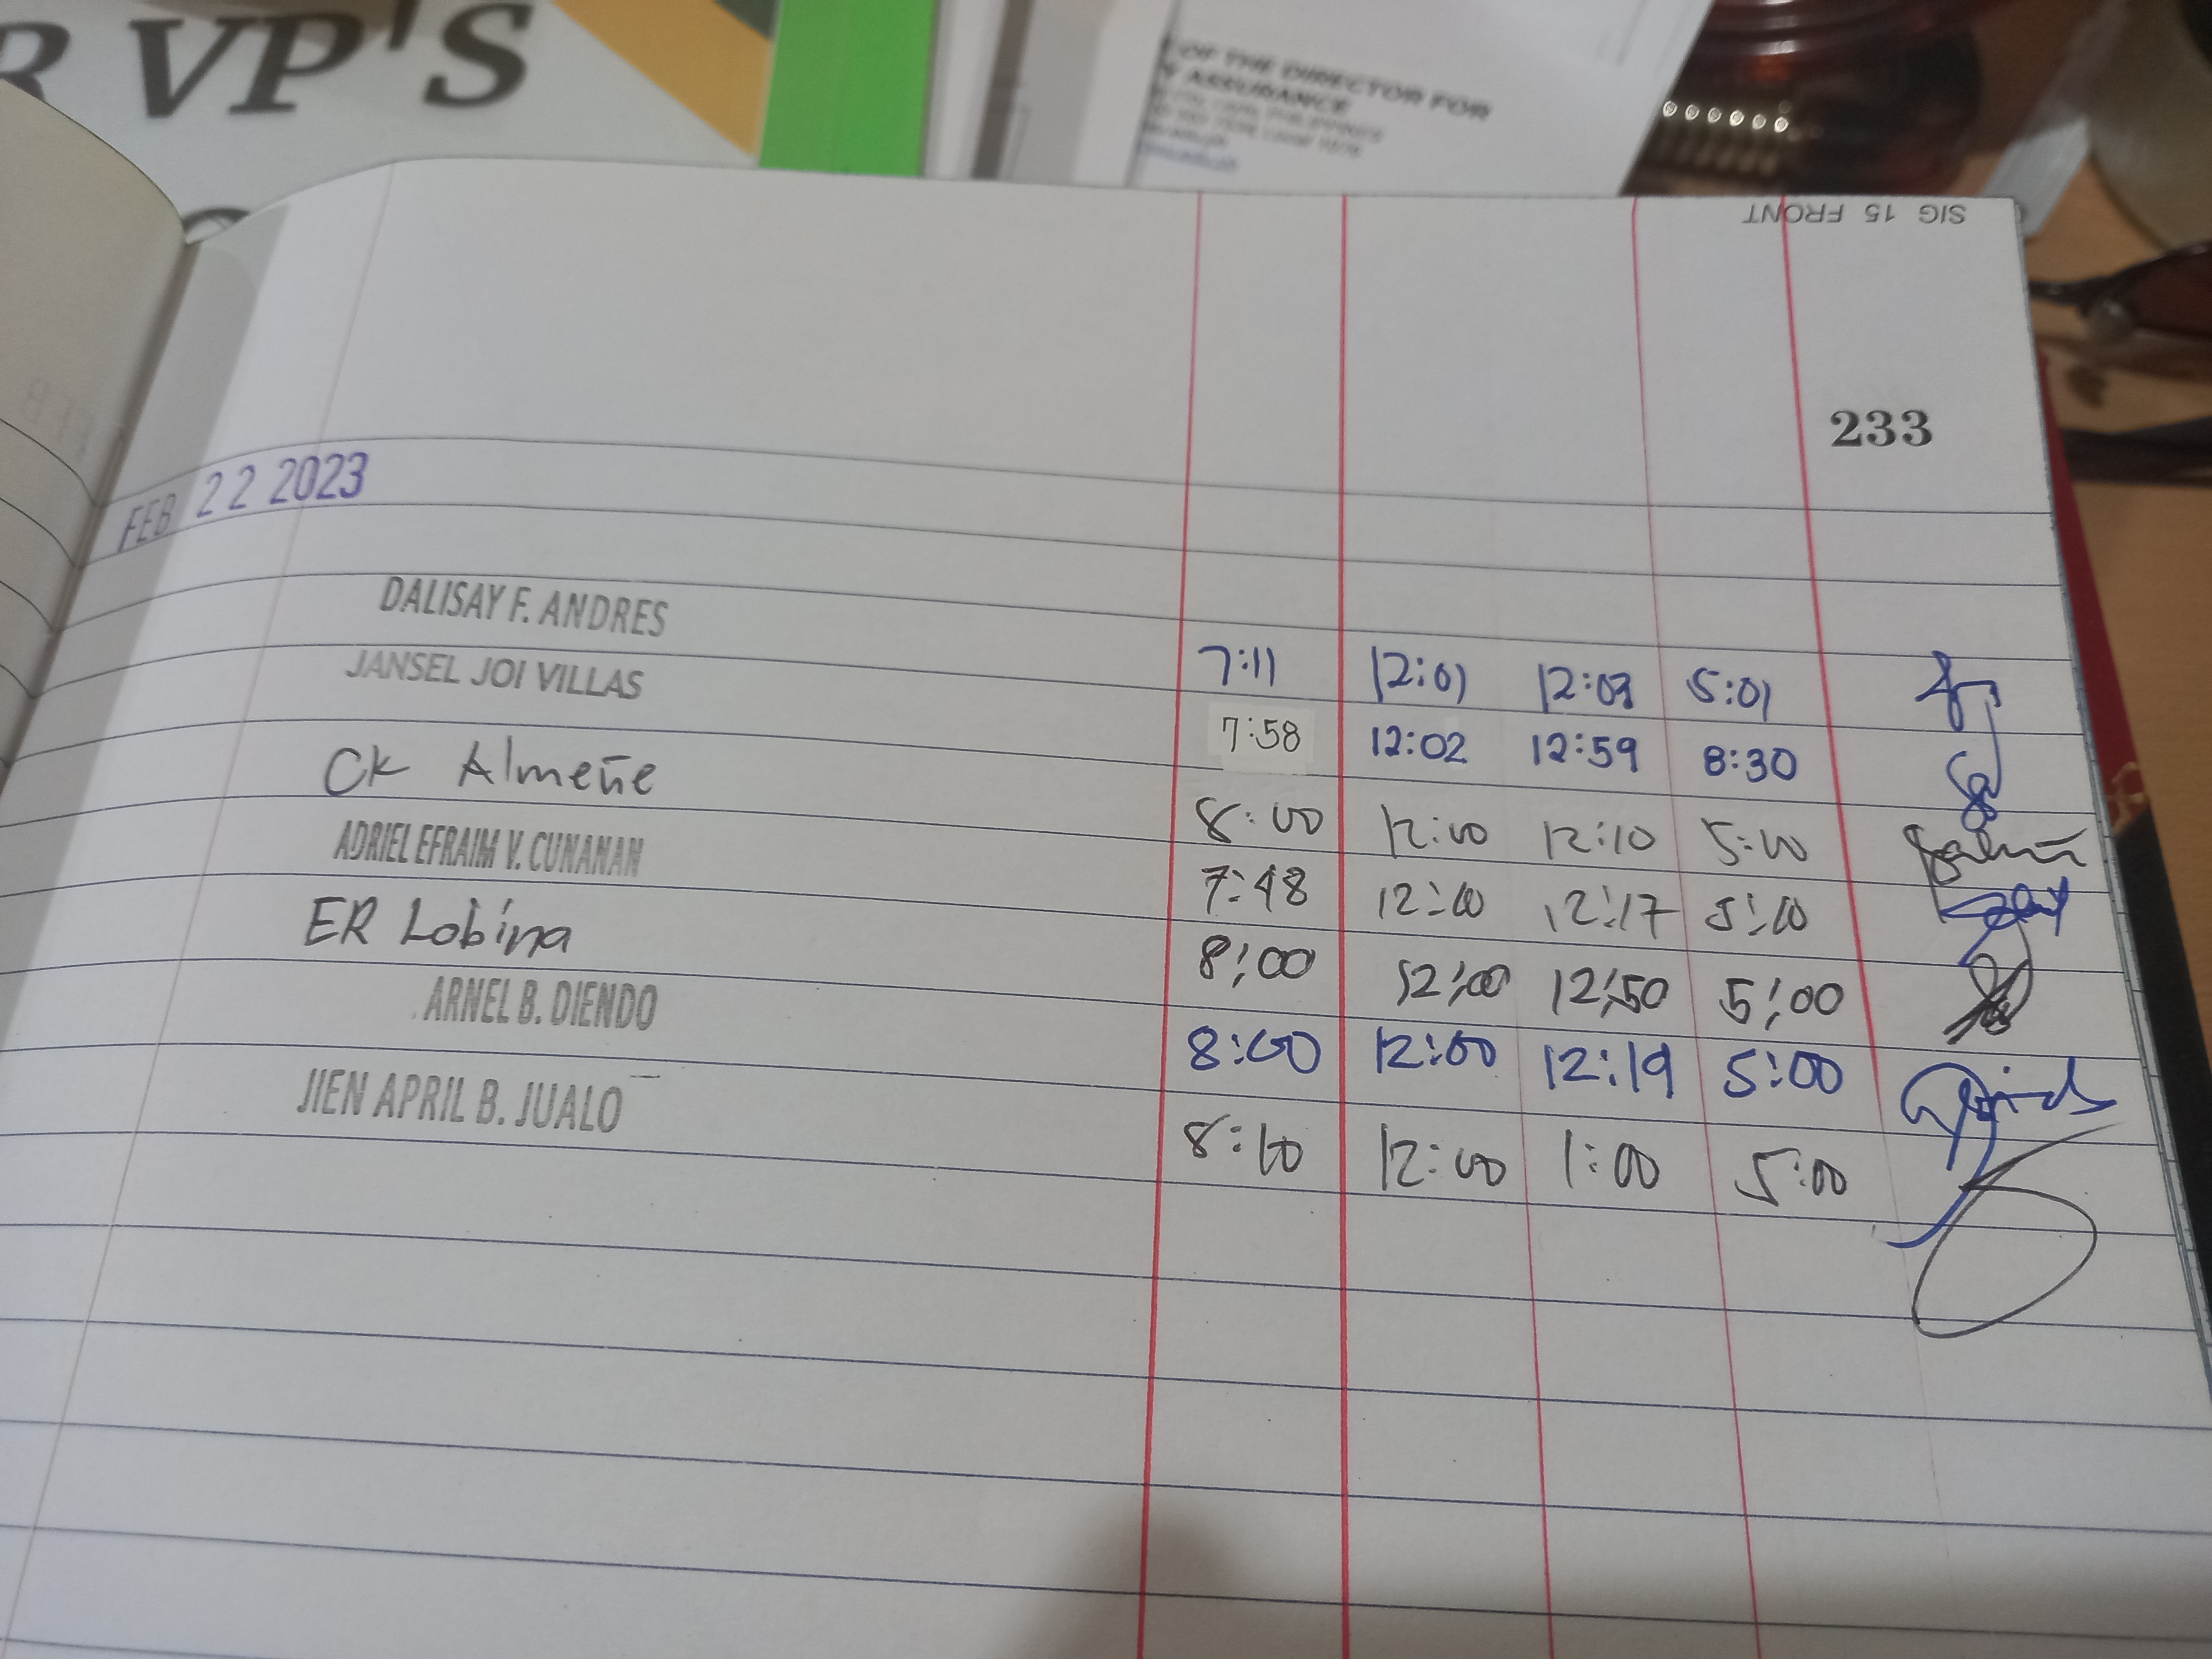 R VP'S
OF THE DIRECTOR FOR
ASSURANCE
SIG 15 FRONT
233
FEB 22 2023
DALISAY F. ANDRES 7:11 12:01 12:03 5:01
JANSEL JOI VILLAS 7:58 12:02 12:59 8:30
CK Almeñe 8:00 12:00 12:10 5:00
ADRIEL EFRAIM V. CUNANAN 7:48 12:00 12:17 5:00
ER Lobina 8:00 12:00 12:50 5:00
ARNEL B. DIENDO 8:00 12:00 12:19 5:00
JIEN APRIL B. JUALO 8:10 12:00 1:00 5:00